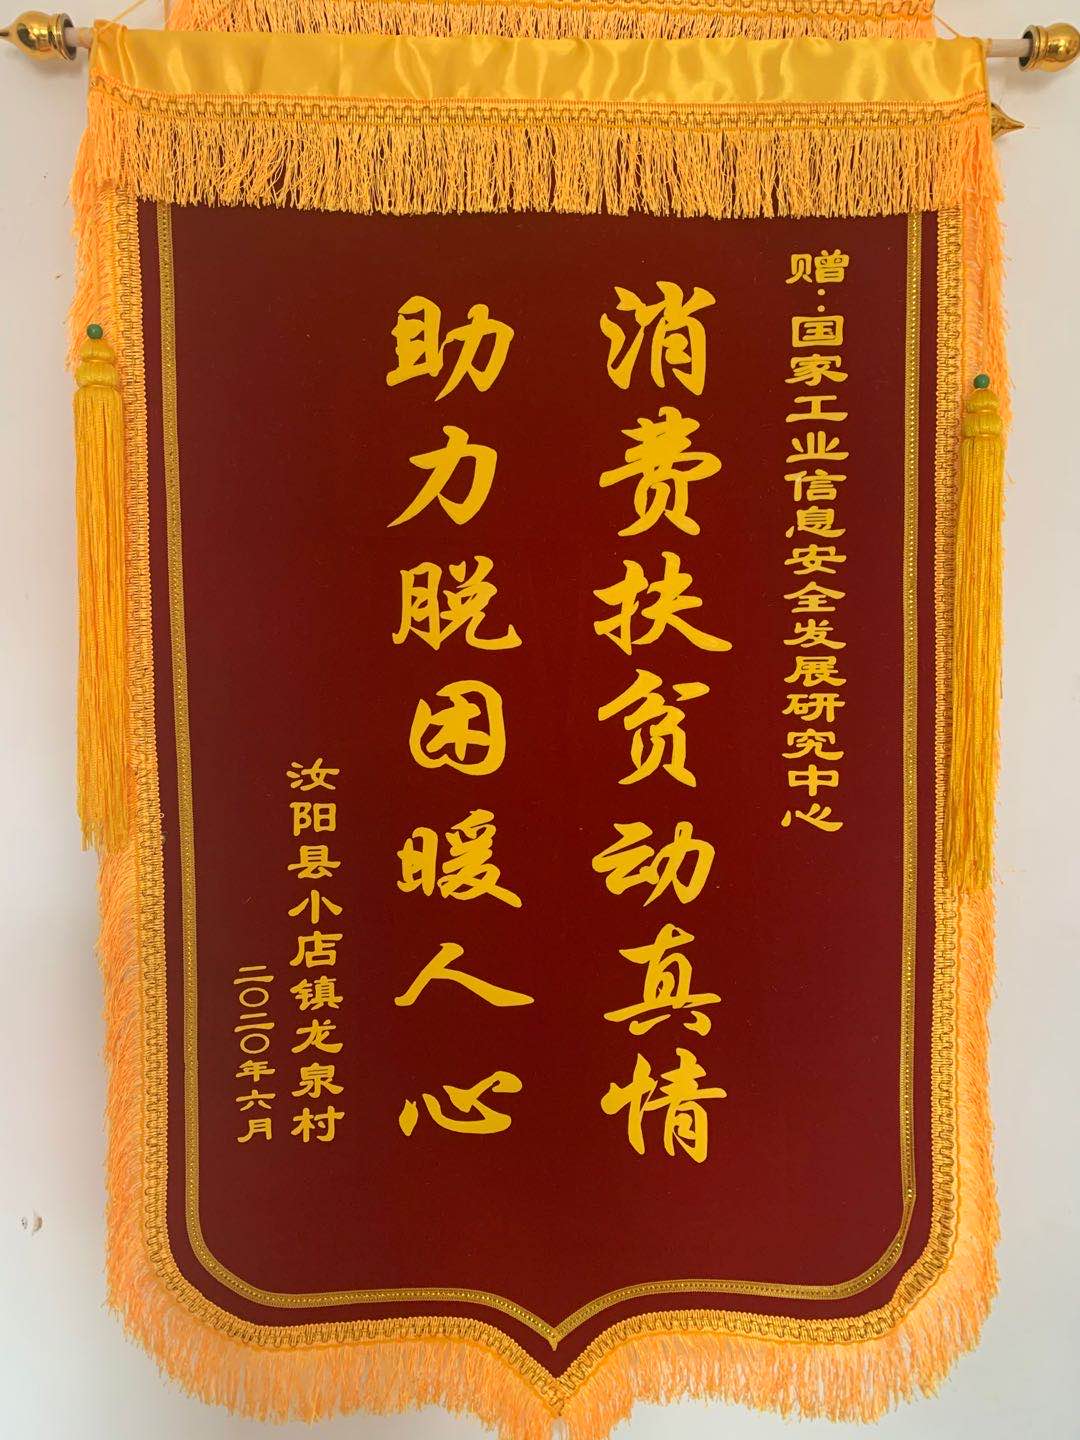 赠:国家工业信息安全发展研究中心
消费扶贫动真情
助力脱困暖人心
汝阳县小店镇龙泉村
二〇二〇年六月